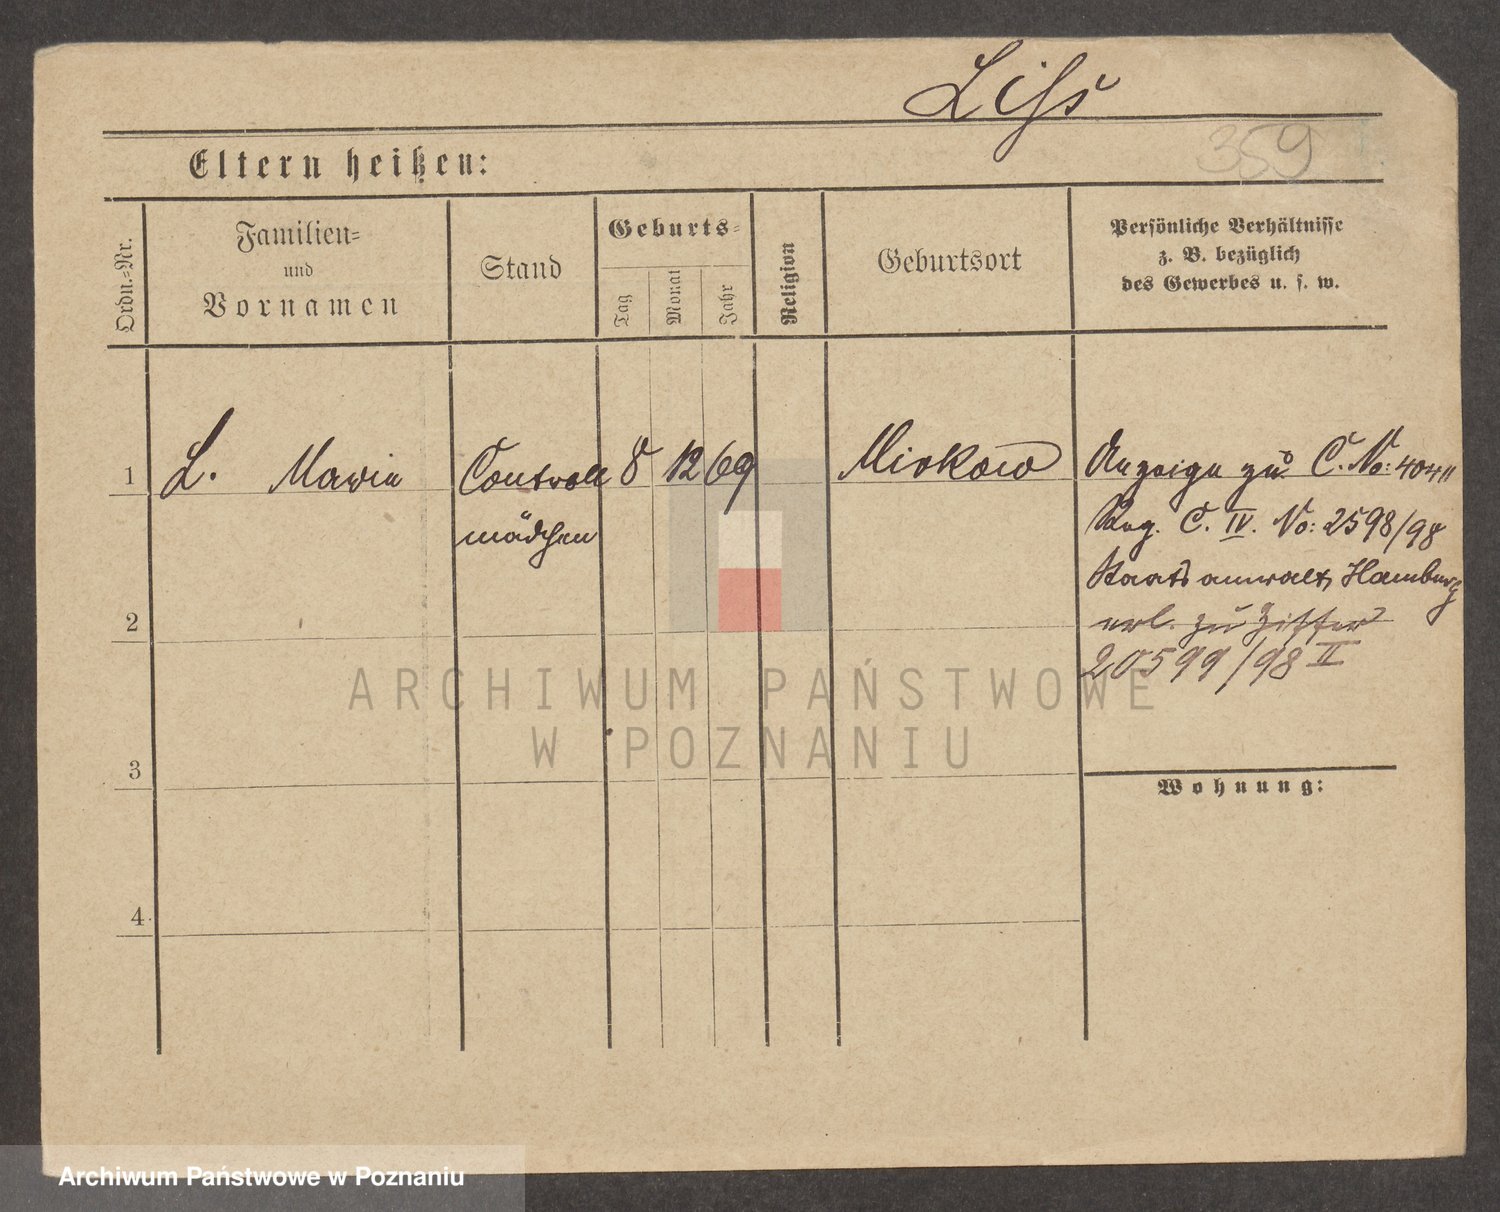 Liss
359
Eltern heißen:
Ordn.=Nr.
Familien=
und
Vornamen
Stand
Geburts=
Tag
Monat
Jahr
Religion
Geburtsort
Persönliche Verhältnisse
z. B. bezüglich
des Gewerbes u. s. w.
1
L. Maria
Controll
mädchen
8
12
69
Mirkow
Anzeige zu C. No: 4044
Reg. C. IV. No: 2598/98
Staatsanwalt, Hamburg
erl. zu Ziffer
20599/98 II
2
ARCHIWUM PAŃSTWOWE
W POZNANIU
3
Wohnung:
4
Archiwum Państwowe w Poznaniu